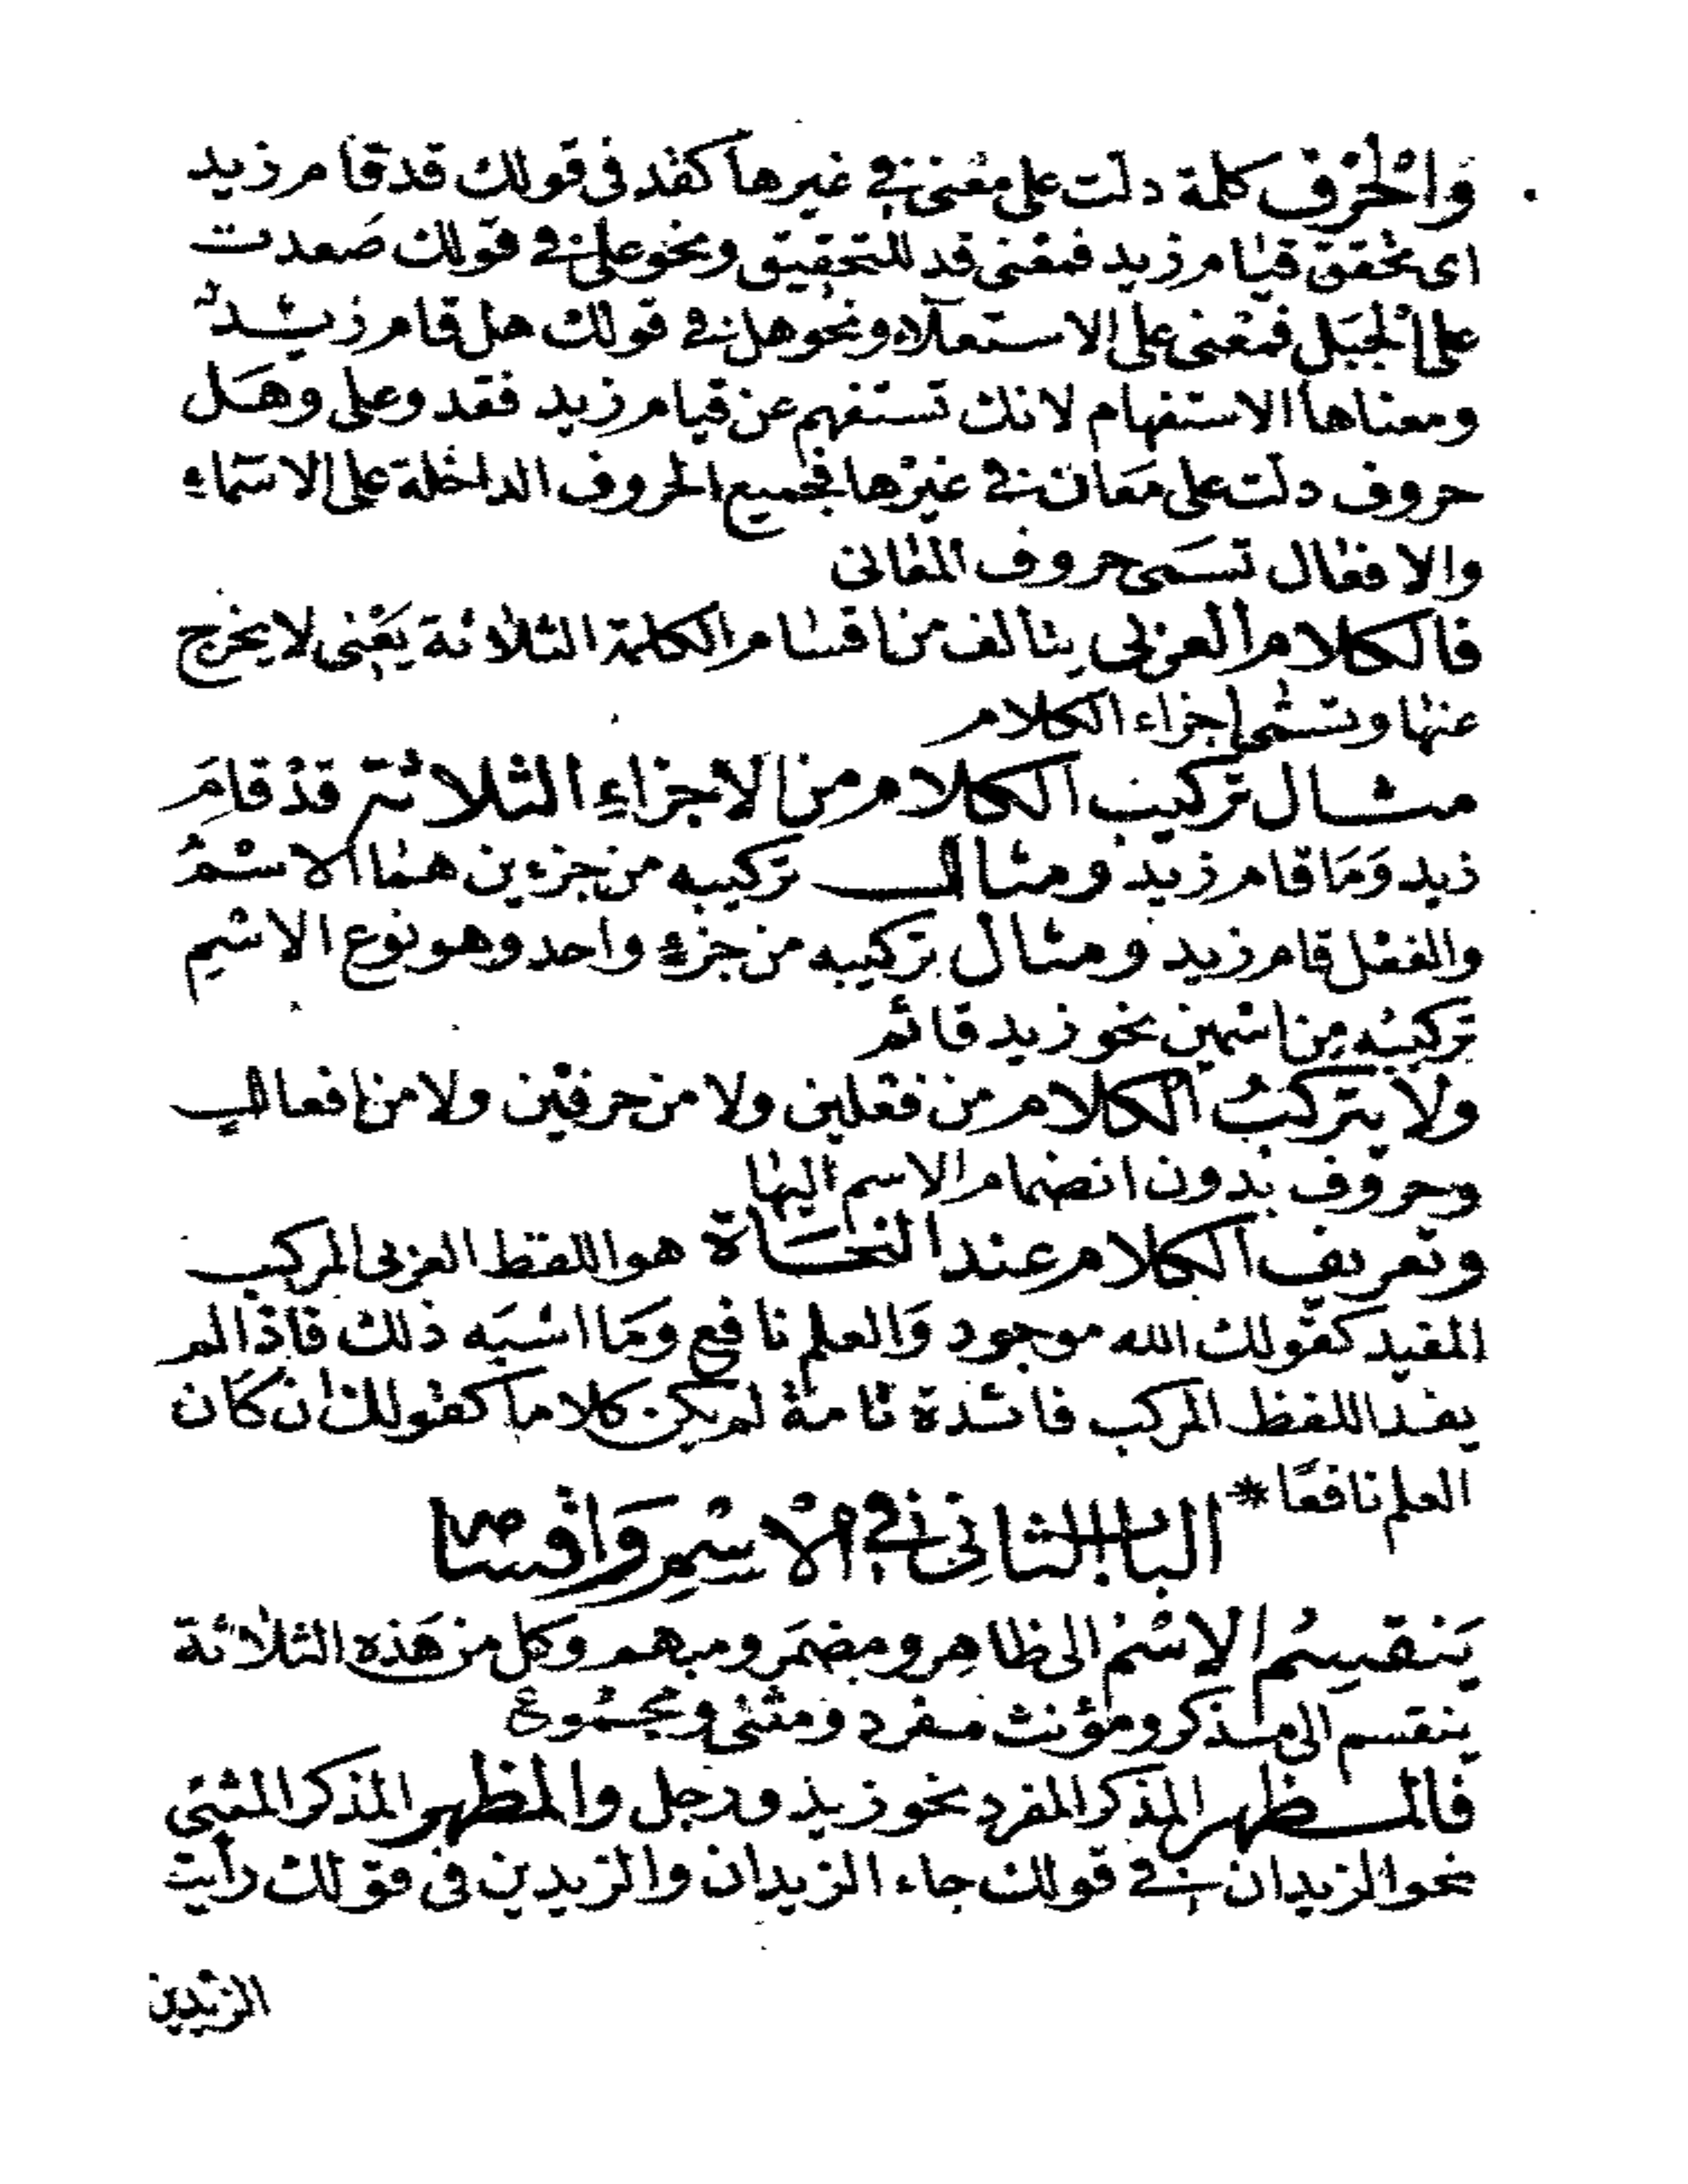 وَالْحَرْف كلمة دلت على مَعْنى في غيرها كقد فى قولك قد قام زيد
اى تحقق قيام زيد فمعنى قد للتحقيق ونحو على في قولك صَعدت
على الْجَبَل فمَعْنى على الاستعلاء ونحو هل في قولك هل قام زيْدٌ
ومعناها الاستفهام لانك تستفهم عن قيام زيد فقد وعلى وهَل
حروف دلت على مَعَان في غيْرها فجميع الحروف الداخلة على الاسَماءِ
والافعال تسَمى حروف المعانى
فالكلام العربى يتألف من اقسام الكلمة الثلاثة يَعْنى لا يخرج
عنها وتسمى اجزاء الكلام
مثال تركيب الكلام من الاجزاءِ الثلاثة قدْ قامَ
زيد وَمَا قام زيد ومثال تركيبه من جزءين هما الاسْمُ
والفعْل قام زيد ومثال تركيبه من جزءٍ واحد وهو نوع الاسْمِ
تركيبُه مِن اسْمين نحو زيد قائم
ولا يتركبُ الكلام من فعْلين ولا من حرفيْن ولا من افعالٍ
وحروف بدون انضمام الاسم اليها
وتعريف الكلام عند النحَاة هو اللفظ العربى المركب
المفيد كقولك الله موجود وَالعلم نافع وَمَا اشبَه ذلك فاذا لم
يفد اللفظ المركب فائدة تامة لم يكن كلاما كقولك ان كَان
العلم نافعًا *
الباب الثانِى في الْاسْمِ وَاقسَامه
يَنقسِمُ الاسْم الى ظاهِر ومضمَر ومبهم وكل من هَذه الثلاثة
ينقسم الى مذكر ومؤنث مفرد ومثنى ومجمُوع
فالمظهر المذكر المفرد نحو زيد ورجل والمظهر المذكر المثنى
نحو الزيدان في قولك جاء الزيدان والزيدين فى قولك رأيت
الزيدين